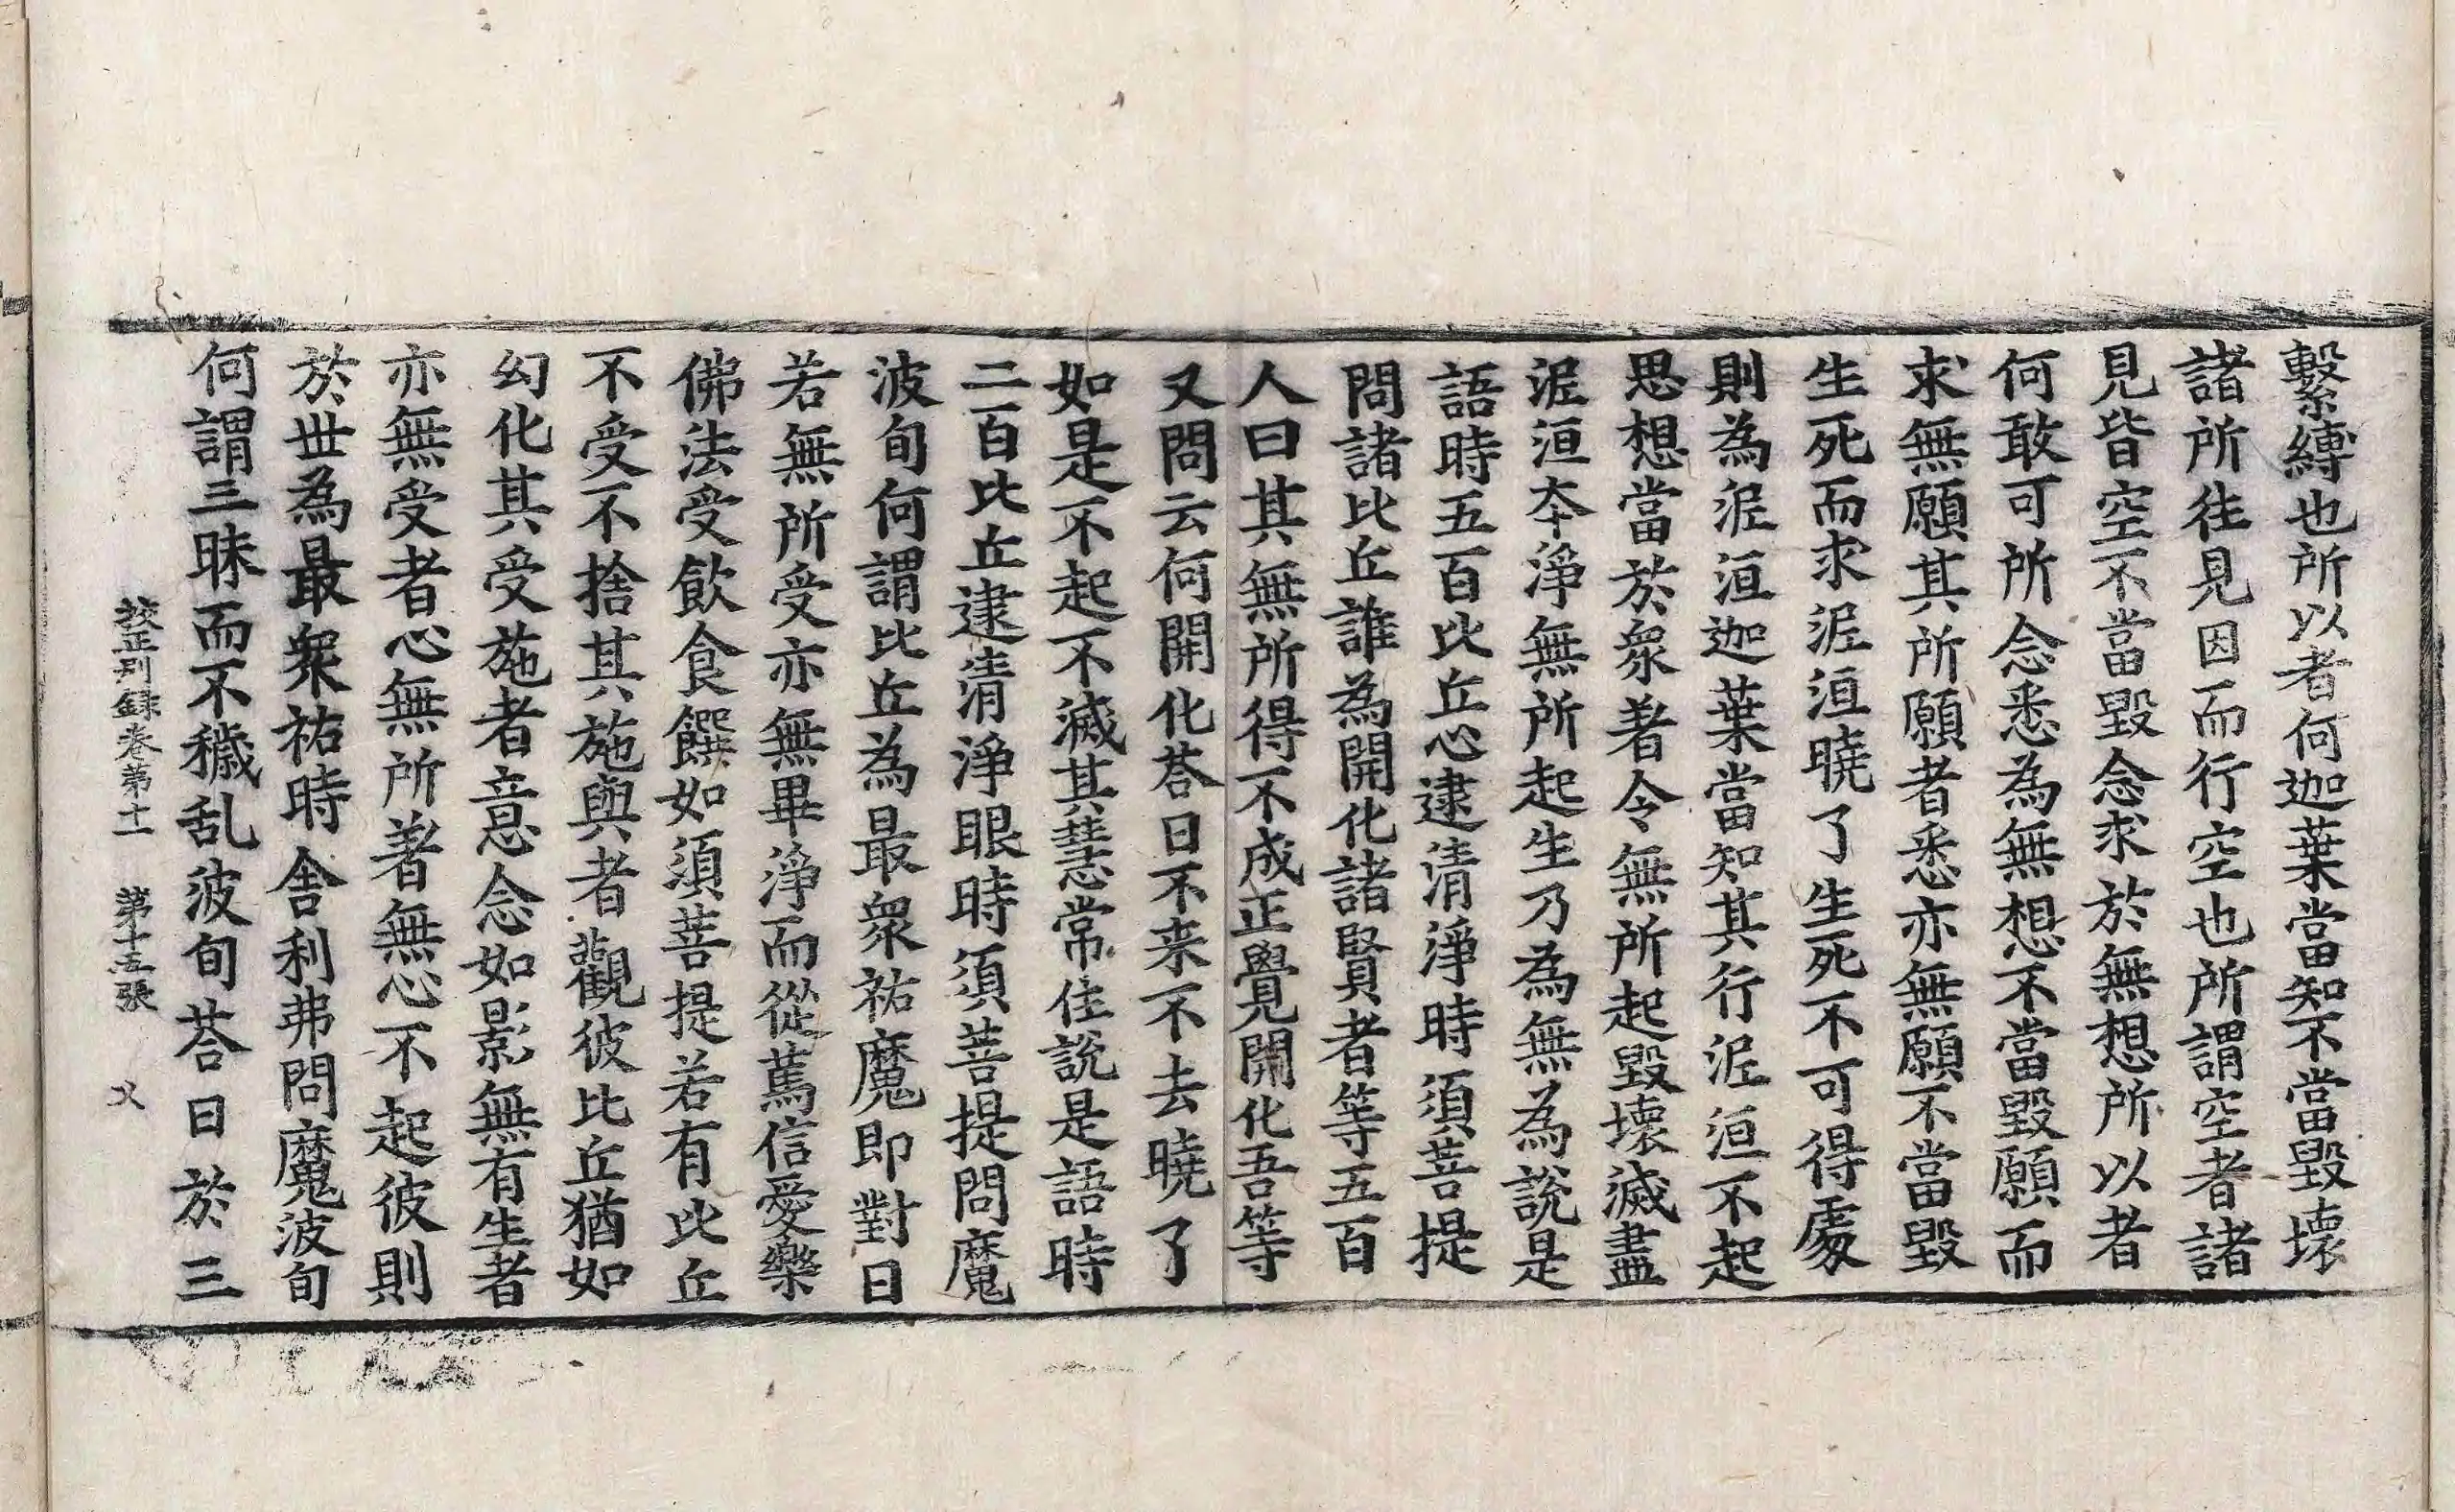 繫縛也所以者何迦葉當知不當毀壞
諸所徃見因而行空也所謂空者諸
見皆空不當毀念求於無想所以者
何敢可所念悉為無想不當毀願而
求無願其所願者悉亦無願不當毀
生死而求泥洹曉了生死不可得處
則為泥洹迦葉當知其行泥洹不起
思想當於衆著令無所起毀壞滅盡
泥洹夲淨無所起生乃為無為說是
語時五百比丘心逮清淨時須菩提
問諸比丘誰為開化諸賢者等五百
人曰其無所得不成正覺開化吾等
又問云何開化荅曰不来不去曉了
如是不起不滅其慧常住說是語時
二百比丘逮清淨眼時須菩提問魔
波旬何謂比丘為最衆祐魔即對曰
若無所受亦無畢淨而從篤信愛樂
佛法受飲食饌如須菩提若有比丘
不受不捨其施與者觀彼比丘猶如
幻化其受施者意念如影無有生者
亦無受者心無所著無心不起彼則
於世為最衆祐時舍利弗問魔波旬
何謂三昧而不穢乱波旬荅曰於三
校正別録卷第十一　第十五張　乂